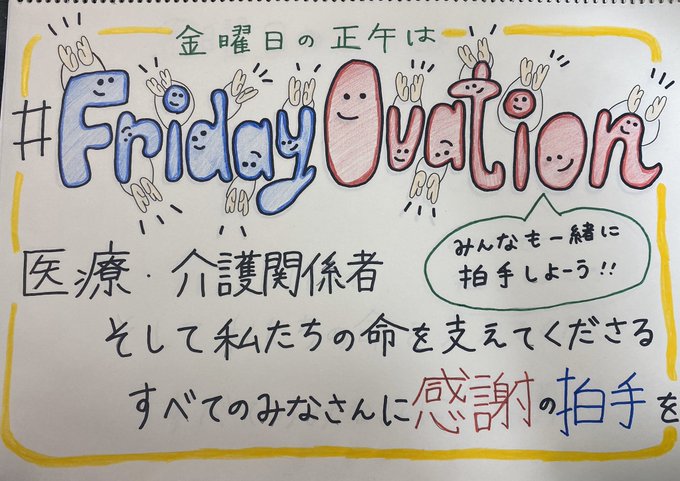 金曜日の正午は
#FridayOvation
みんなも一緒に
拍手しよーう!!
医療・介護関係者
そして私たちの命を支えてくださる
すべてのみなさんに感謝の拍手を